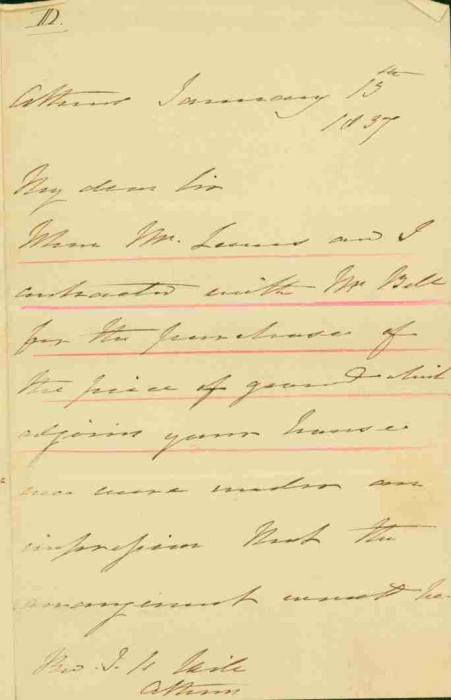 D.
Athens January 13th
1837
My dear Sir
When Mr. Leeves and I
contracted with Mr Bell
for the purchase of
the piece of ground which
adjoins your house
we were under an
impression that the
arrangement would be
Rev. J. H. Hill
Athens